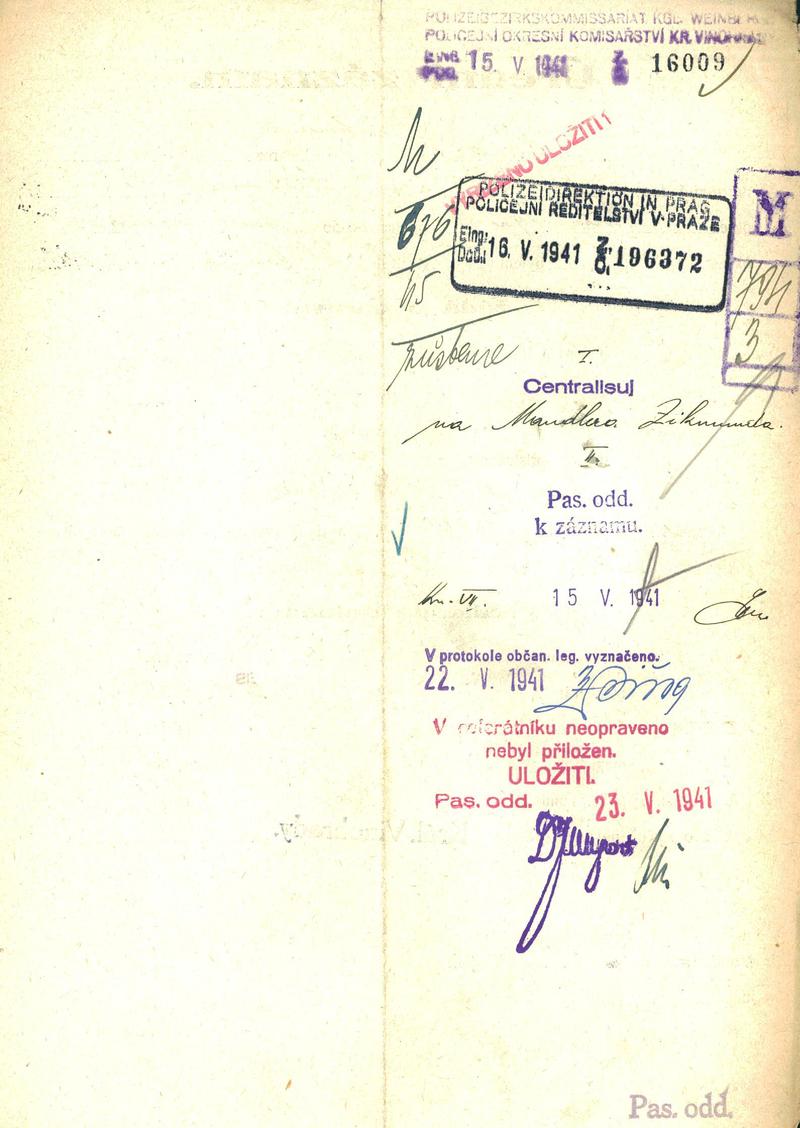 POLIZEIBEZIRKSKOMMISSARIAT KGL. WEINBE
POLICEJNÍ OKRESNÍ KOMISAŘSTVÍ KR. VINOHRADY
15. V 1941 16009
VYŘÍZENO ULOŽITI!
M
POLIZEIDIREKTION IN PRAG
POLICEJNÍ ŘEDITELSTVÍ V PRAZE
Eing.
Došlo 16. V. 1941 Z. Č. 196372
M
676
45
791
3
I.
Centralisuj
na Mandlera Zikmunda.
II.
Pas. odd.
k záznamu.
15 V. 1941
V protokole občan. leg. vyznačeno.
22. V. 1941
V referátníku neopraveno
nebyl přiložen.
ULOŽITI.
Pas. odd. 23. V. 1941
Pas. odd.